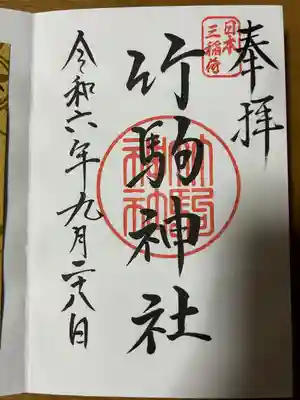 奉拝
日本
三稲荷
竹駒神社
竹駒
神社
令和六年九月二十八日